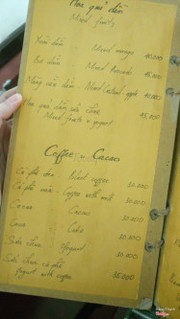 Hoa quả dầm
Mixed fruits
Xoài dầm Mixed mango 40.000
Bơ dầm Mixed Avocado 45.000
Mãng cầu dầm - Mixed custard apple 40.000
Hoa quả dầm sữa chua
Mixed fruits n yogurt 45.000
Coffee - Cacao
Cà phê đen - Black coffee 20.000
Cà phê nâu - Coffee with milk
Cacao Cacao
Coca Coke 20.000
Sữa chua Yogurt
Sữa chua cà phê
Yogurt with coffee 35.000